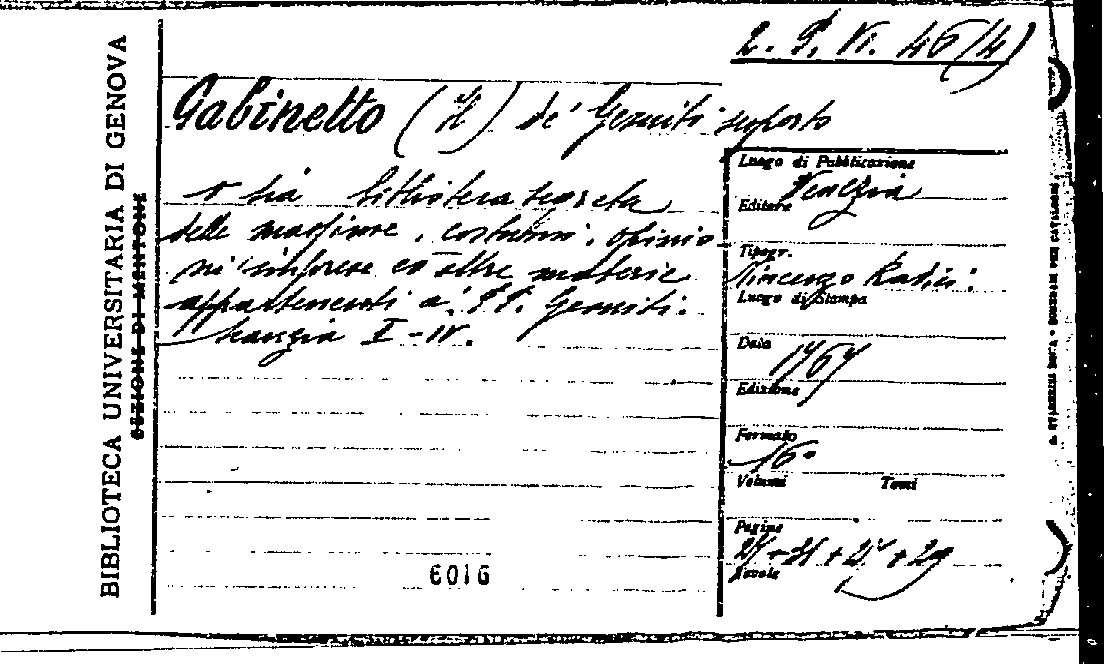 2. P. VI. 46 (4)
Gabinetto (Il) de' Gesuiti scoperto
o sia biblioteca segreta
delle massime, costumi, opinio
ni imprese ed altre materie
appartenenti a' PP. Gesuiti.
Scanzia I-IV.
6016
BIBLIOTECA UNIVERSITARIA DI GENOVA
SEZIONE DI MENTONE
Luogo di Pubblicazione
Venezia
Editore
Tipogr.
Vincenzo Radici
Luogo di Stampa
Data
1767
Edizione
Formato
16°
Volumi Tomi
Pagine
+ + + 29
Tavole